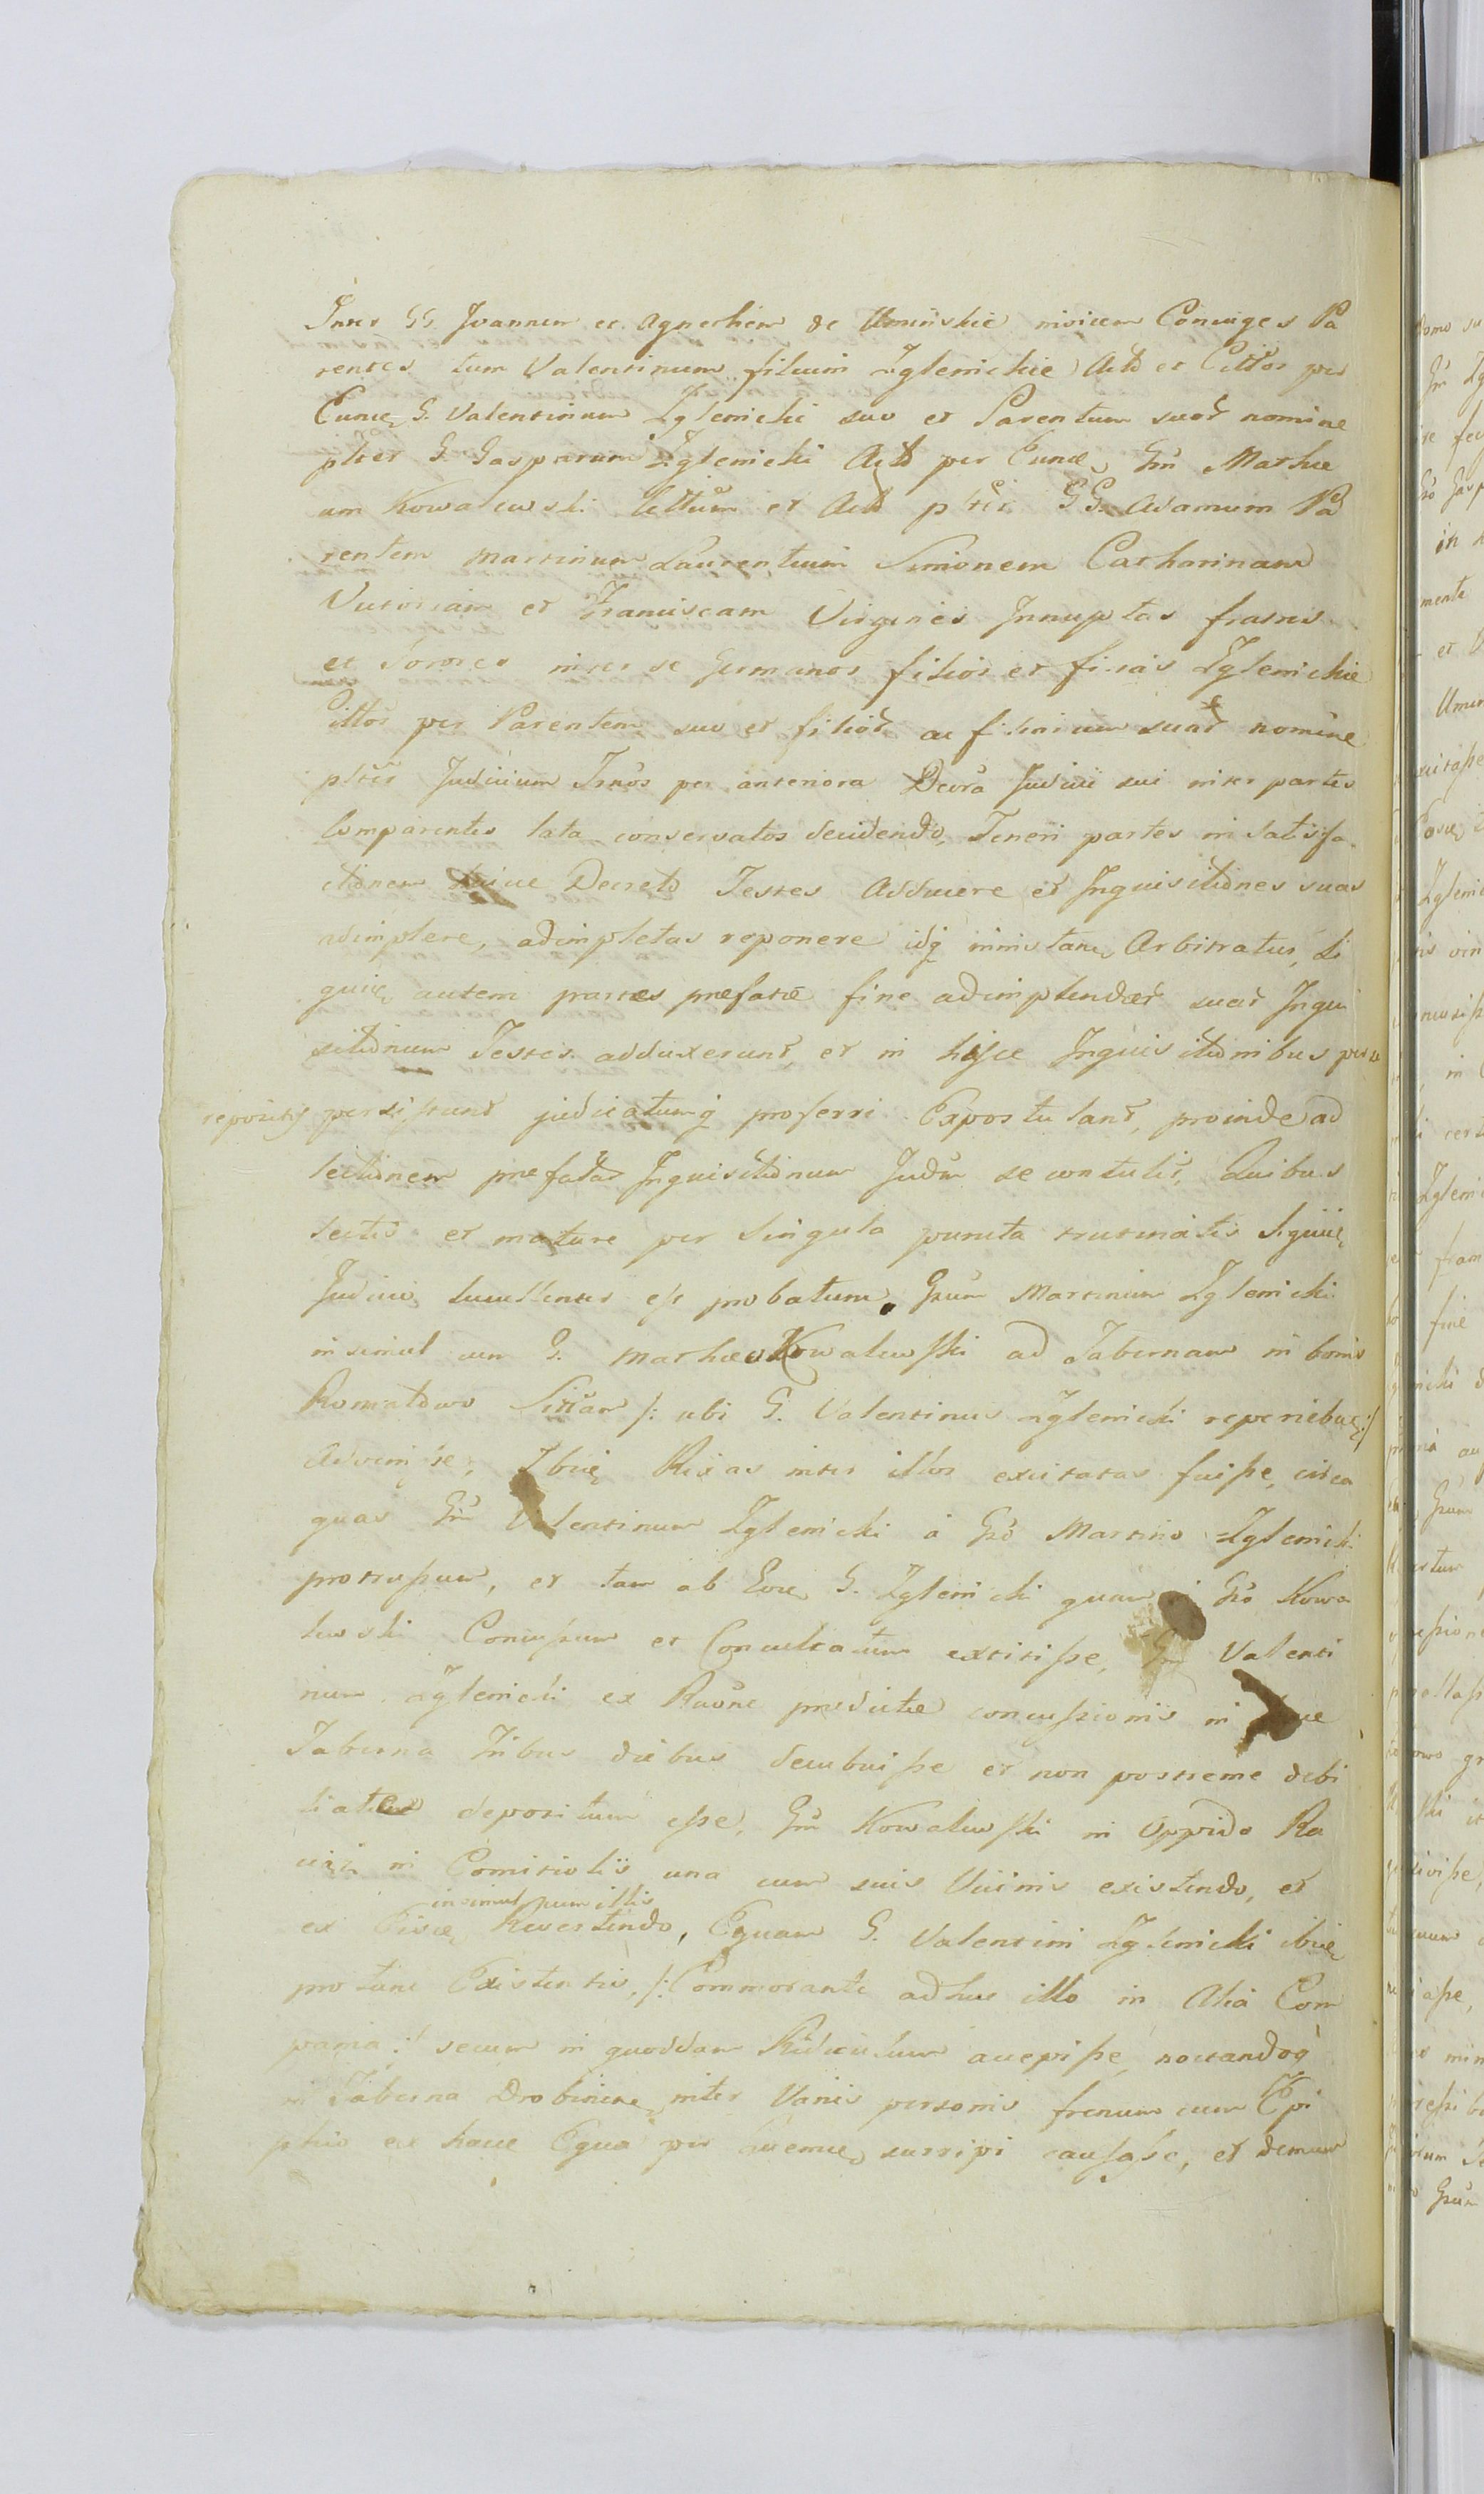 Inter GG. Joannem et Agnethem de Umińskie invicem Coniuges Pa
rentes tum Valentinum filium Zglenickie Actō et Cittōs per
Eunc G. Valentinum Zglenicki suo et Parentum suor̃ nomine
pltēr G. Gasparum Zglenicki Actō per Eunc Gm̃ Mathe
um Kowalewski Cittum et Actō pltēr GG. Adamum Pa
rentem Martinum Laurentium Simonem Catharinam
Victoriam et Franciscam Virgines Innuptas fratres
et Sorores inter se Germanos filios et filias Zglenickie
Cittōs per Parentem suo et filior̃ ac filiarum suar̃ nomine
pltēr Judicium Trnōs per anteriora Decrā Judicii sui inter partes
Comparentes lata conservatos decidendo, Teneri partes in satisfa
ctionem huice Decreto Testes Adducere et Inquisitiones suas
adimplere, adimpletas reponere idq ininstanc Arbitratur, Si
quidē autem partes prefatæ fine adimplendar̃ suar̃ Inqui
sitionum Testes adduxerunt, et in hisce Inquisitionibus per e
repositis persistunt judicatumq proferri Expostulant, proinde ad
lectionem prefatar̃ Inquisitionum Judm̃ se contulit, Quibus
lectis et mature per singula puncta trutinatis Siquidē
Judicio luculenter est probatum, Gsum Martinum Zglenicki
insimul cum G. Matheo Kowalewski ad Tabernam in bonis
Romatowo Sittam /: ubi G. Valentinus Zglenicki reperiebat :/
Advenisse, Ibiq Rixas inter illos excitatas fuisse, circa
quas Gm̃ Valentinum Zglenicki a Gsō Martino Zglenicki
protrusum, et tam ab Eoce G. Zglenicki quam a Gsō Kowa
lewski Concussum et Conculcatum extitisse, Gm̃ Valenti
num Zglenicki ex Raōne predictæ concussionis in
Taberna Tribus diebus decubuisse et non postreme debi
litatum depositum esse, Gm̃ Kowalewski in Oppido Ra
ciąż in Comitiolis una cum suis Vicinis existendo, et
insimul cum illis
ex Eisce Revertendo, Equam G. Valentini Zglenicki ibiq
pro tunc Existentis, /: Commorante adhuc illo in Alia Com
pania :/ secum in quoddam Ridiculum accepisse, noctandoq
in Taberna Drobinensi inter Variis personis frenum cum Epi
phio ex hacce Equa per Quemc surripi causasse, et demum